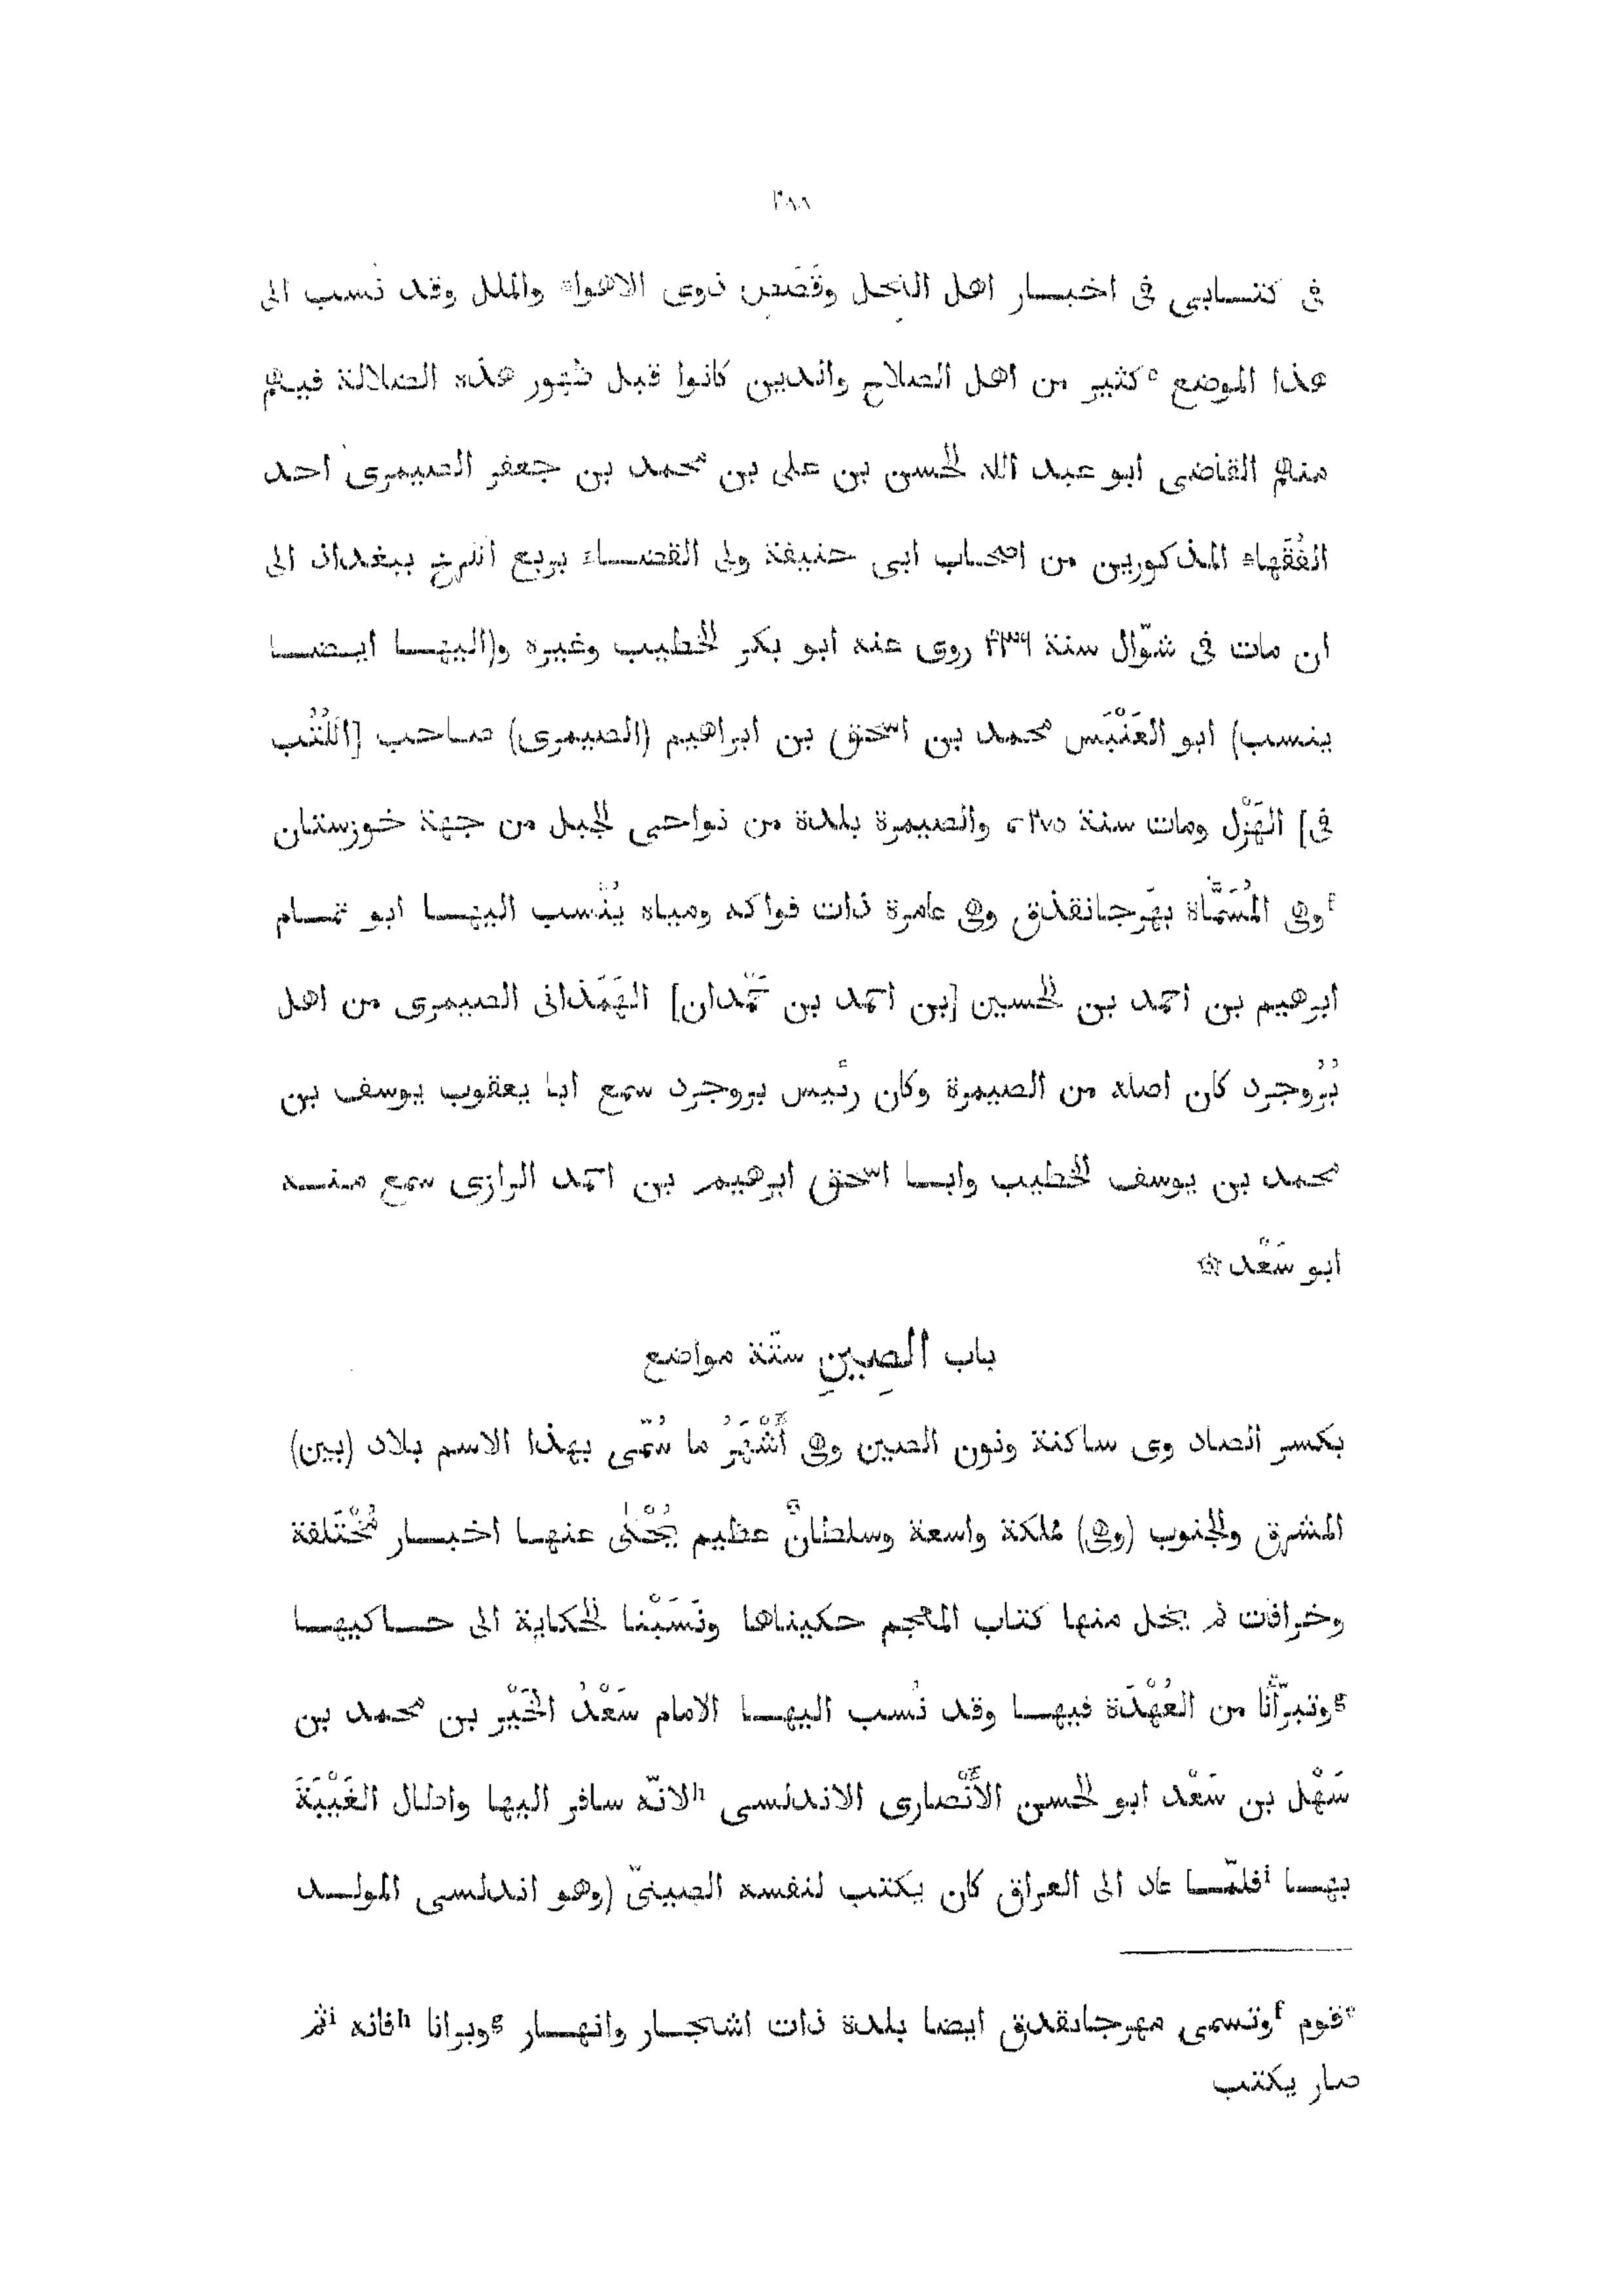 ٢٨٨
فى كتابى فى اخبار اهل النِحل وقَصَصِ ذوى الاهواء والملل وقد نُسب الى
هذا الموضع ᵉكثير من اهل الصلاح والدين كانوا قبل ظهور هذه الضلالة فيهم
منهم القاضى ابو عبد الله الحسن بن على بن محمد بن جعفر الصيمرى احد
الفُقَهاء المذكورين من اصحاب ابى حنيفة ولى القضاء بربع الكرخ ببغداد الى
ان مات فى شوّال سنة ۴۳۶ روى عنه ابو بكر الخطيب وغيره و(اليها ايضا
ينسب) ابو العَنْبَس محمد بن اسحق بن ابراهيم (الصيمرى) صاحب [الكُتُب
فى] الهَزْل ومات سنة ٢٧٥ والصيمرة بلدة من نواحى الجبل من جهة خوزستان
ᶠوهى المُسَمَّاة بمِهرجانقذق وهى عامرة ذات فواكه ومياه يُنْسب اليها ابو تمام
ابرهيم بن احمد بن الحسين [بن احمد بن حَمْدان] الهَمَذانى الصيمرى من اهل
بُرُوجرد كان اصله من الصيمرة وكان رئيس بروجرد سمع ابا يعقوب يوسف بن
محمد بن يوسف الخطيب وابا اسحق ابرهيم بن احمد الرازى سمع منه
ابو سَعْد ۞
باب الصِينِ ستّة مواضع
بكسر الصاد وى ساكنة ونون الصين وهى أَشْهَرُ ما سُمّى بهذا الاسم بلاد (بين)
المشرق والجنوب (وهى) مملكة واسعة وسلطانٌ عظيم يُحْكى عنها اخبار مُخْتَلفة
وخرافات لم يخل منها كتاب المعجم حكيناها ونَسَبْنا الحكاية الى حاكيها
ᵍوتبرّأْنا من العُهْدَة فيها وقد نُسب اليها الامام سَعْدُ الخَيْر بن محمد بن
سَهْل بن سَعْد ابو الحسن الأَنْصارى الاندلسى ʰلانّه سافر اليها واطال الغَيْبَةَ
بها ⁱفلمّا عاد الى العراق كان يكتب لنفسه الصينىّ (وهو اندلسى المولد
ᵉقوم ᶠوتسمى مهرجانقذق ايضا بلدة ذات اشجار وانهار ᵍوبرانا ʰفانه ⁱثم
صار يكتب